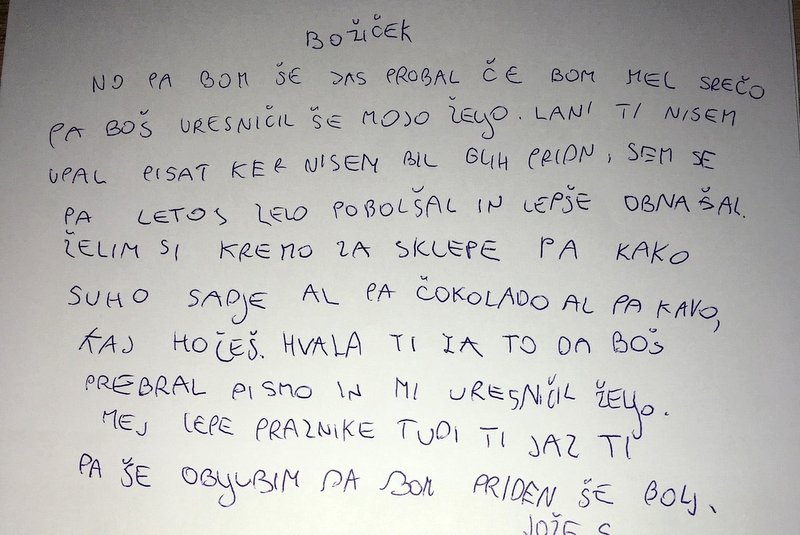 BOŽIČEK
NO PA BOM ŠE JAS PROBAL ČE BOM MEL SREČO
PA BOŠ URESNIČIL ŠE MOJO ŽELJO. LANI TI NISEM
UPAL PISAT KER NISEM BIL GLIH PRIDN, SEM SE
PA LETOS ZELO POBOLŠAL IN LEPŠE OBNAŠAL.
ŽELIM SI KREMO ZA SKLEPE PA KAKO
SUHO SADJE AL PA ČOKOLADO AL PA KAVO,
KAJ HOČEŠ. HVALA TI ZA TO DA BOŠ
PREBRAL PISMO IN MI URESNIČIL ŽELJO.
MEJ LEPE PRAZNIKE TUDI TI JAZ TI
PA ŠE OBLJUBIM DA BOM PRIDEN ŠE BOLJ.
JOŽE S